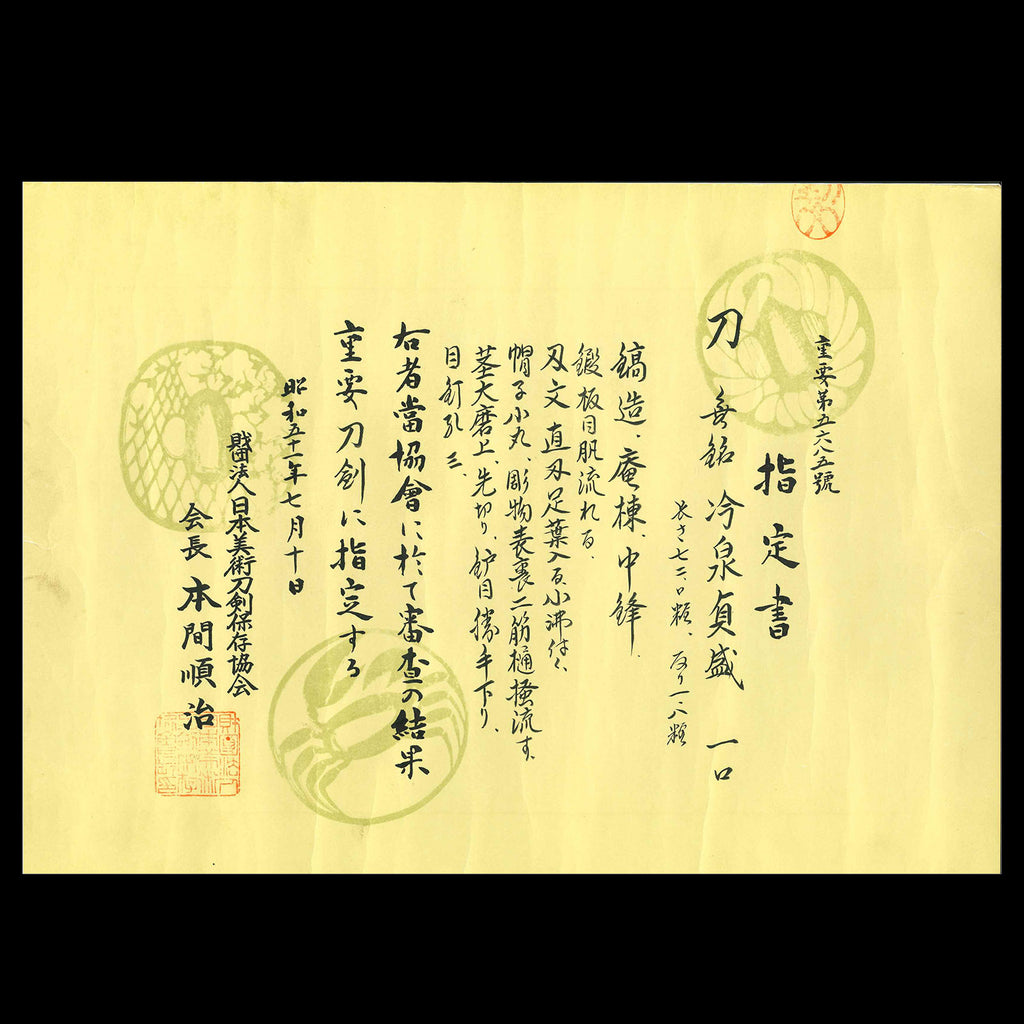 重要第五六八五號
指定書
刀 無銘 冷泉貞盛 一口
長さ七二・〇糎、反り一・八糎
鎬造、庵棟、中鋒、
鍛板目肌流れる、
刃文直刃足葉入る小沸付く、
帽子小丸、彫物表裏二筋樋掻流す、
茎大磨上、先切り、鑢目勝手下り、
目釘孔三、
右者當協會に於て審査の結果
重要刀剣に指定する
昭和五十一年七月十日
財団法人日本美術刀剣保存協会
会長 本間順治